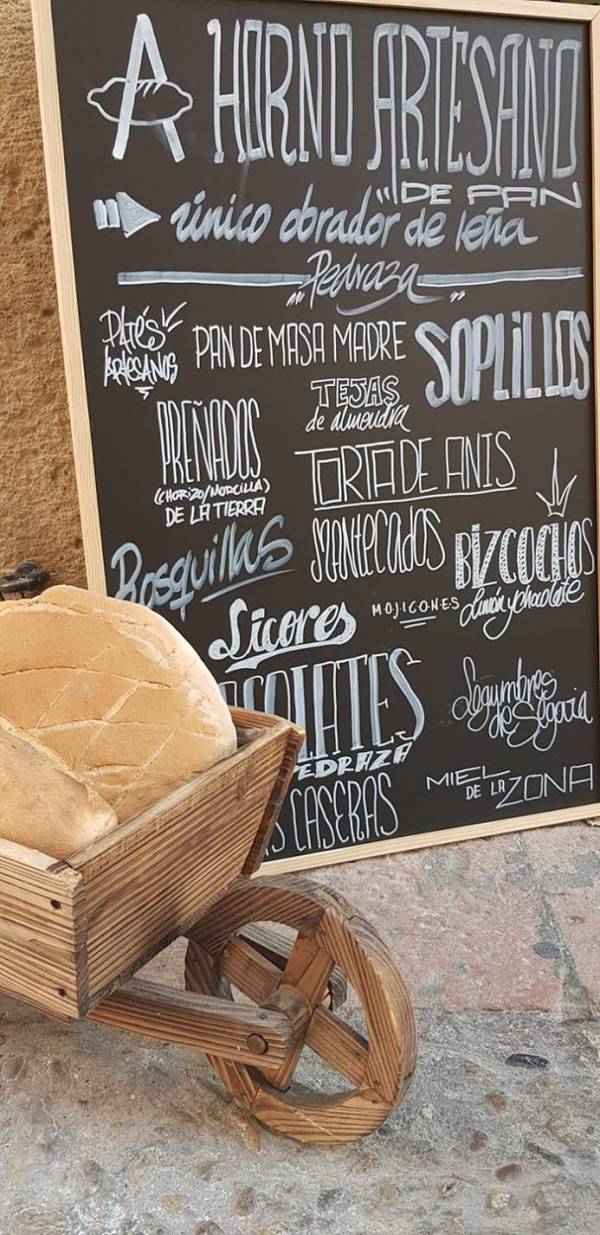 A HORNO ARTESANO
"DE PAN
único obrador de leña
"Pedraza"
PATÉS
ARTESANOS
PAN DE MASA MADRE
SOPLILLOS
TEJAS
de almendra
PREÑADOS
(CHORIZO/MORCILLA)
DE LA TIERRA
TORTA DE ANIS
Rosquillas
MANTECADOS
BIZCOCHOS
Limón y chocolate
Licores
MOJICONES
LATES
PEDRAZA
Legumbres
de Segovia
CASERAS
MIEL
DE LA ZONA